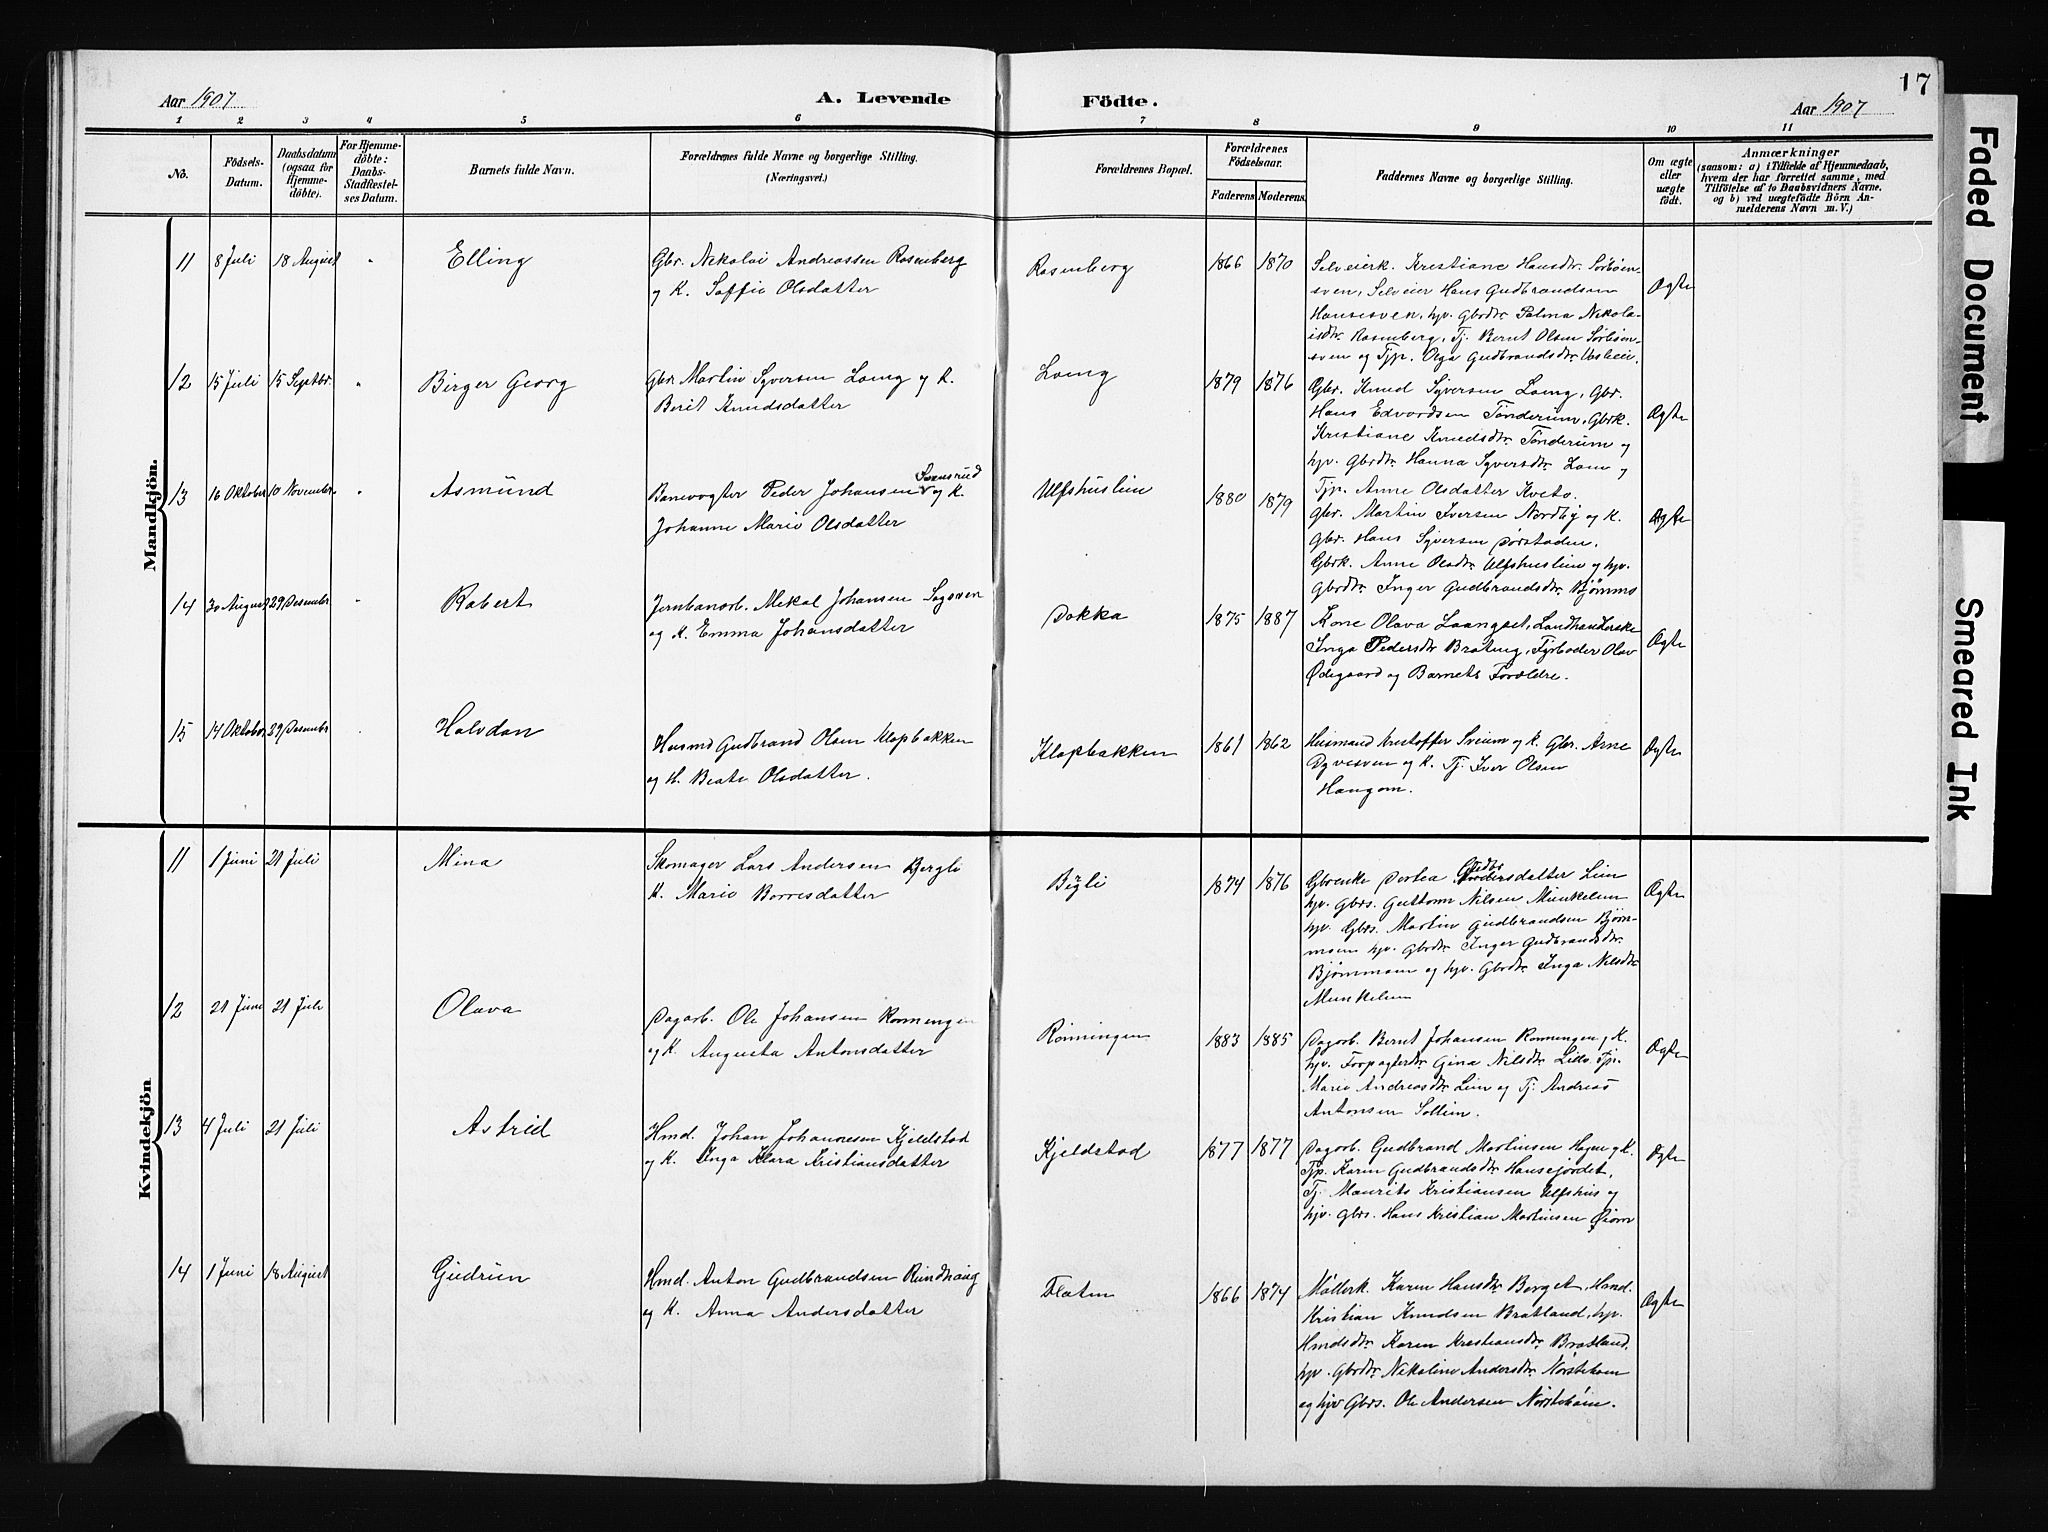 17
Aar 1907
A. Levende
Födte.
Aar 1907
1 2 3 4 5 6 7 8 9 10 11
No.
Födsels-
Datum.
Daabsdatum
(ogsaa for
Hjemme-
döbte).
For Hjemme-
döbte:
Daabs-
Stadfæstel-
ses Datum.
Barnets fulde Navn.
Forældrenes fulde Navne og borgerlige Stilling.
(Næringsvei.)
Forældrenes Bopæl.
Forældrenes
Födselsaar.
Faderens Moderens
Faddernes Navne og borgerlige Stilling.
Om ægte
eller
uægte
født.
Anmærkninger
(saasom: a) i Tilfælde af Hjemmedaab,
hvem der har forrettet samme, med
Tilföielse af to Daabsvidners Navne,
og b) ved uægtefödte Börn An-
melderens Navn m. V.)
Mandkjön.
11 8 Juli 18 August " Elling
Gbr. Nikolai Andreassen Rosenberg
og K. Soffie Olsdatter
Rosenberg 1866 1870
Selveierk. Kristiane Hansdtr. Sørbøen-
sven, Selveier Hans Gudbrandsen
Hansesven, hjv. Gbrdtr. Palma Nikola-
isdtr. Rosenberg, Tj. Bernt Olsen Sørbøen-
sven og Tjp. Olga Gudbrandsdtr.
Ægte
12 15 Juli 15 Septbr. " Birger Georg
Gbr. Martin Syversen Laeng og K.
Berit Knudsdatter
Laeng 1879 1876
Gbr. Knud Syversen Laeng, Gbr.
Hans Edvardsen Tønderum, Gbrk.
Kristiane Knudsdtr. Tønderum og
hjv. Gbrdtr. Hanna Syversdtr. og
Tjp. Anne Olsdatter Kveto.
Ægte
13 16 Oktober 10 November " Asmund
Banevogter Peder Johansen Svensrud og K.
Johanne Marie Olsdatter
Ulfshuslein 1880 1879
Gbr. Martin Iversen Nordby og K.
Gbr. Hans Syversen Dørstaden,
Gbrk. Anne Olsdtr. Ulfshuslein og hjv.
Gbrdtr. Inger Gudbrandsdtr. Bjømms
Ægte
14 30 August 29 Desembr. " Robert
Jernbanarb. Mekal Johansen Sagsven
og K. Emma Johansdatter
Dokka 1875 1887
Kone Olava Laangset, Landhanderske
Inga Pedersdtr. Brateng, Fyrbøder Olav
Ødegaard og Barnets Forældre.
Ægte
15 14 Oktober 29 Desembr. Halvdan
Husmd Gudbrand Olsen Klopbakken
og K. Beate Olsdatter.
Klopbakken 1861 1862
Husmand Kristoffer Sveum og K. Gbr. Arne
Dyvesven og K. Tj. Iver Olsen
Haugom.
Ægte
Kvindekjön
11 1 Juni 21 Juli Mina
Skomager Lars Andersen Bergli
K. Marie Borresdatter
Bergli 1874 1876
Gbrenke Dortea Gudbr Lein
hjv. Gbrs. Guttorm Nilsen Munkelien
hjv. Gbrs. Martin Gudbrandsen Bjøm-
msen hjv. Gbrdtr. Inger Gudbrandsdtr.
Bjømmsen og hjv. Gbrdtr. Inga Nilsdtr.
Munkelien
Ægte
12 21 Juni 21 Juli Olava
Dagarb. Ole Johansen Ronningen
og K. Augusta Antonsdatter
Rönningen 1883 1885
Dagarb. Bernt Johansen Ronningen og K.
hjv. Forpagterdtr. Gina Nilsdtr. Lillo, Tjp.
Marie Andreasdtr. Lein og Tj. Andreas
Antonsen Sollien.
Ægte
13 4 Juli 21 Juli Astrid
Hmd. Johan Johannesen Kjeldstad
og K. Inga Klara Kristiansdatter
Kjeldstad 1877 1877
Dagarb. Gudbrand Martinsen Hagen og K.
Tjp. Karen Gudbrandsdtr. Hansejordet,
Tj. Maurits Kristiansen Ulfshus og
hjv. Gbrs. Hans Kristian Martinsen Øiom
Ægte
14 1 Juni 18 August Gudrun
Hmd. Anton Gudbrandsen Rundhaug
og K. Anna Andersdatter
Flaten 1866 1874
Møllerk. Karen Hansdtr. Berget, Hmd.
Kristian Knudsen Bratland, hjv.
Hmdsdtr. Karen Kristiansdtr. Bratland,
hjv. Gbrdtr. Nikoline Andersdtr. Nørstehom
og hjv Gbrs. Ole Andersen Nørstehom.
Ægte
Faded Document
Smeared Ink